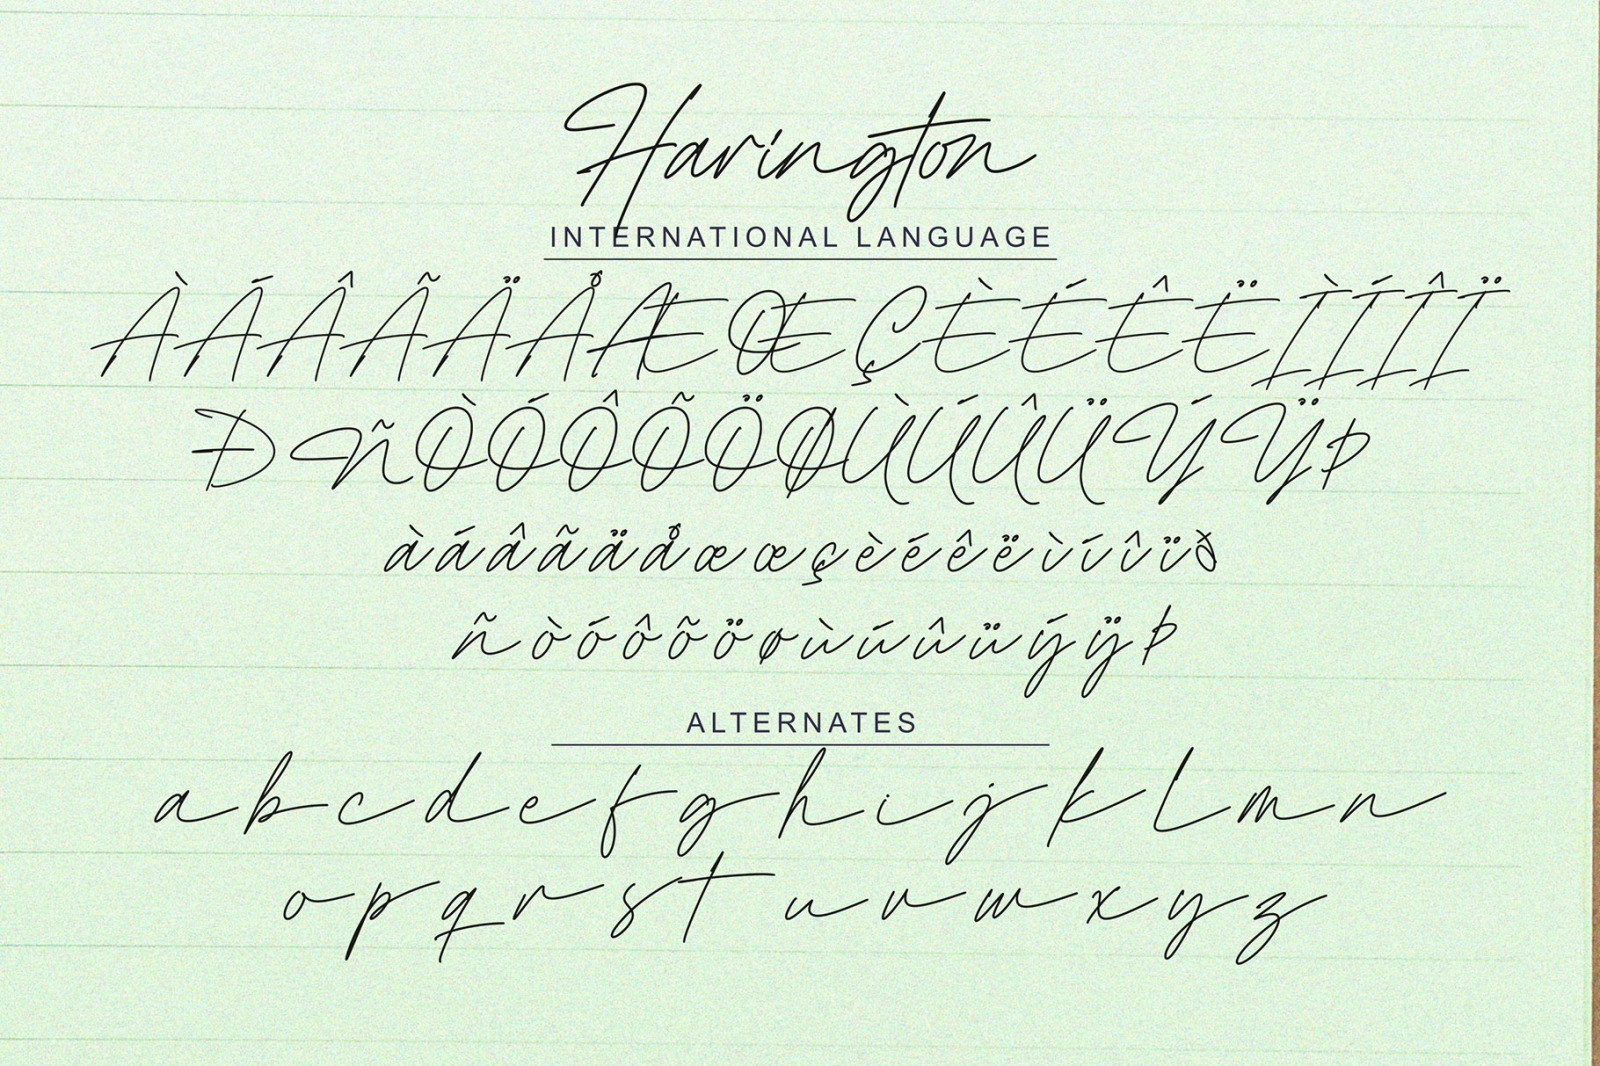 Harington
INTERNATIONAL LANGUAGE
À Á Â Ã Ä Å Æ Œ Ç È É Ê Ë Ì Í Î Ï
Ð Ñ Ò Ó Ô Õ Ö Ø Ù Ú Û Ü Ý Ÿ Þ
à á â ã ä å æ œ ç è é ê ë ì í î ï ð
ñ ò ó ô õ ö ø ù ú û ü ý ÿ þ
ALTERNATES
a b c d e f g h i j k l m n
o p q r s t u v w x y z